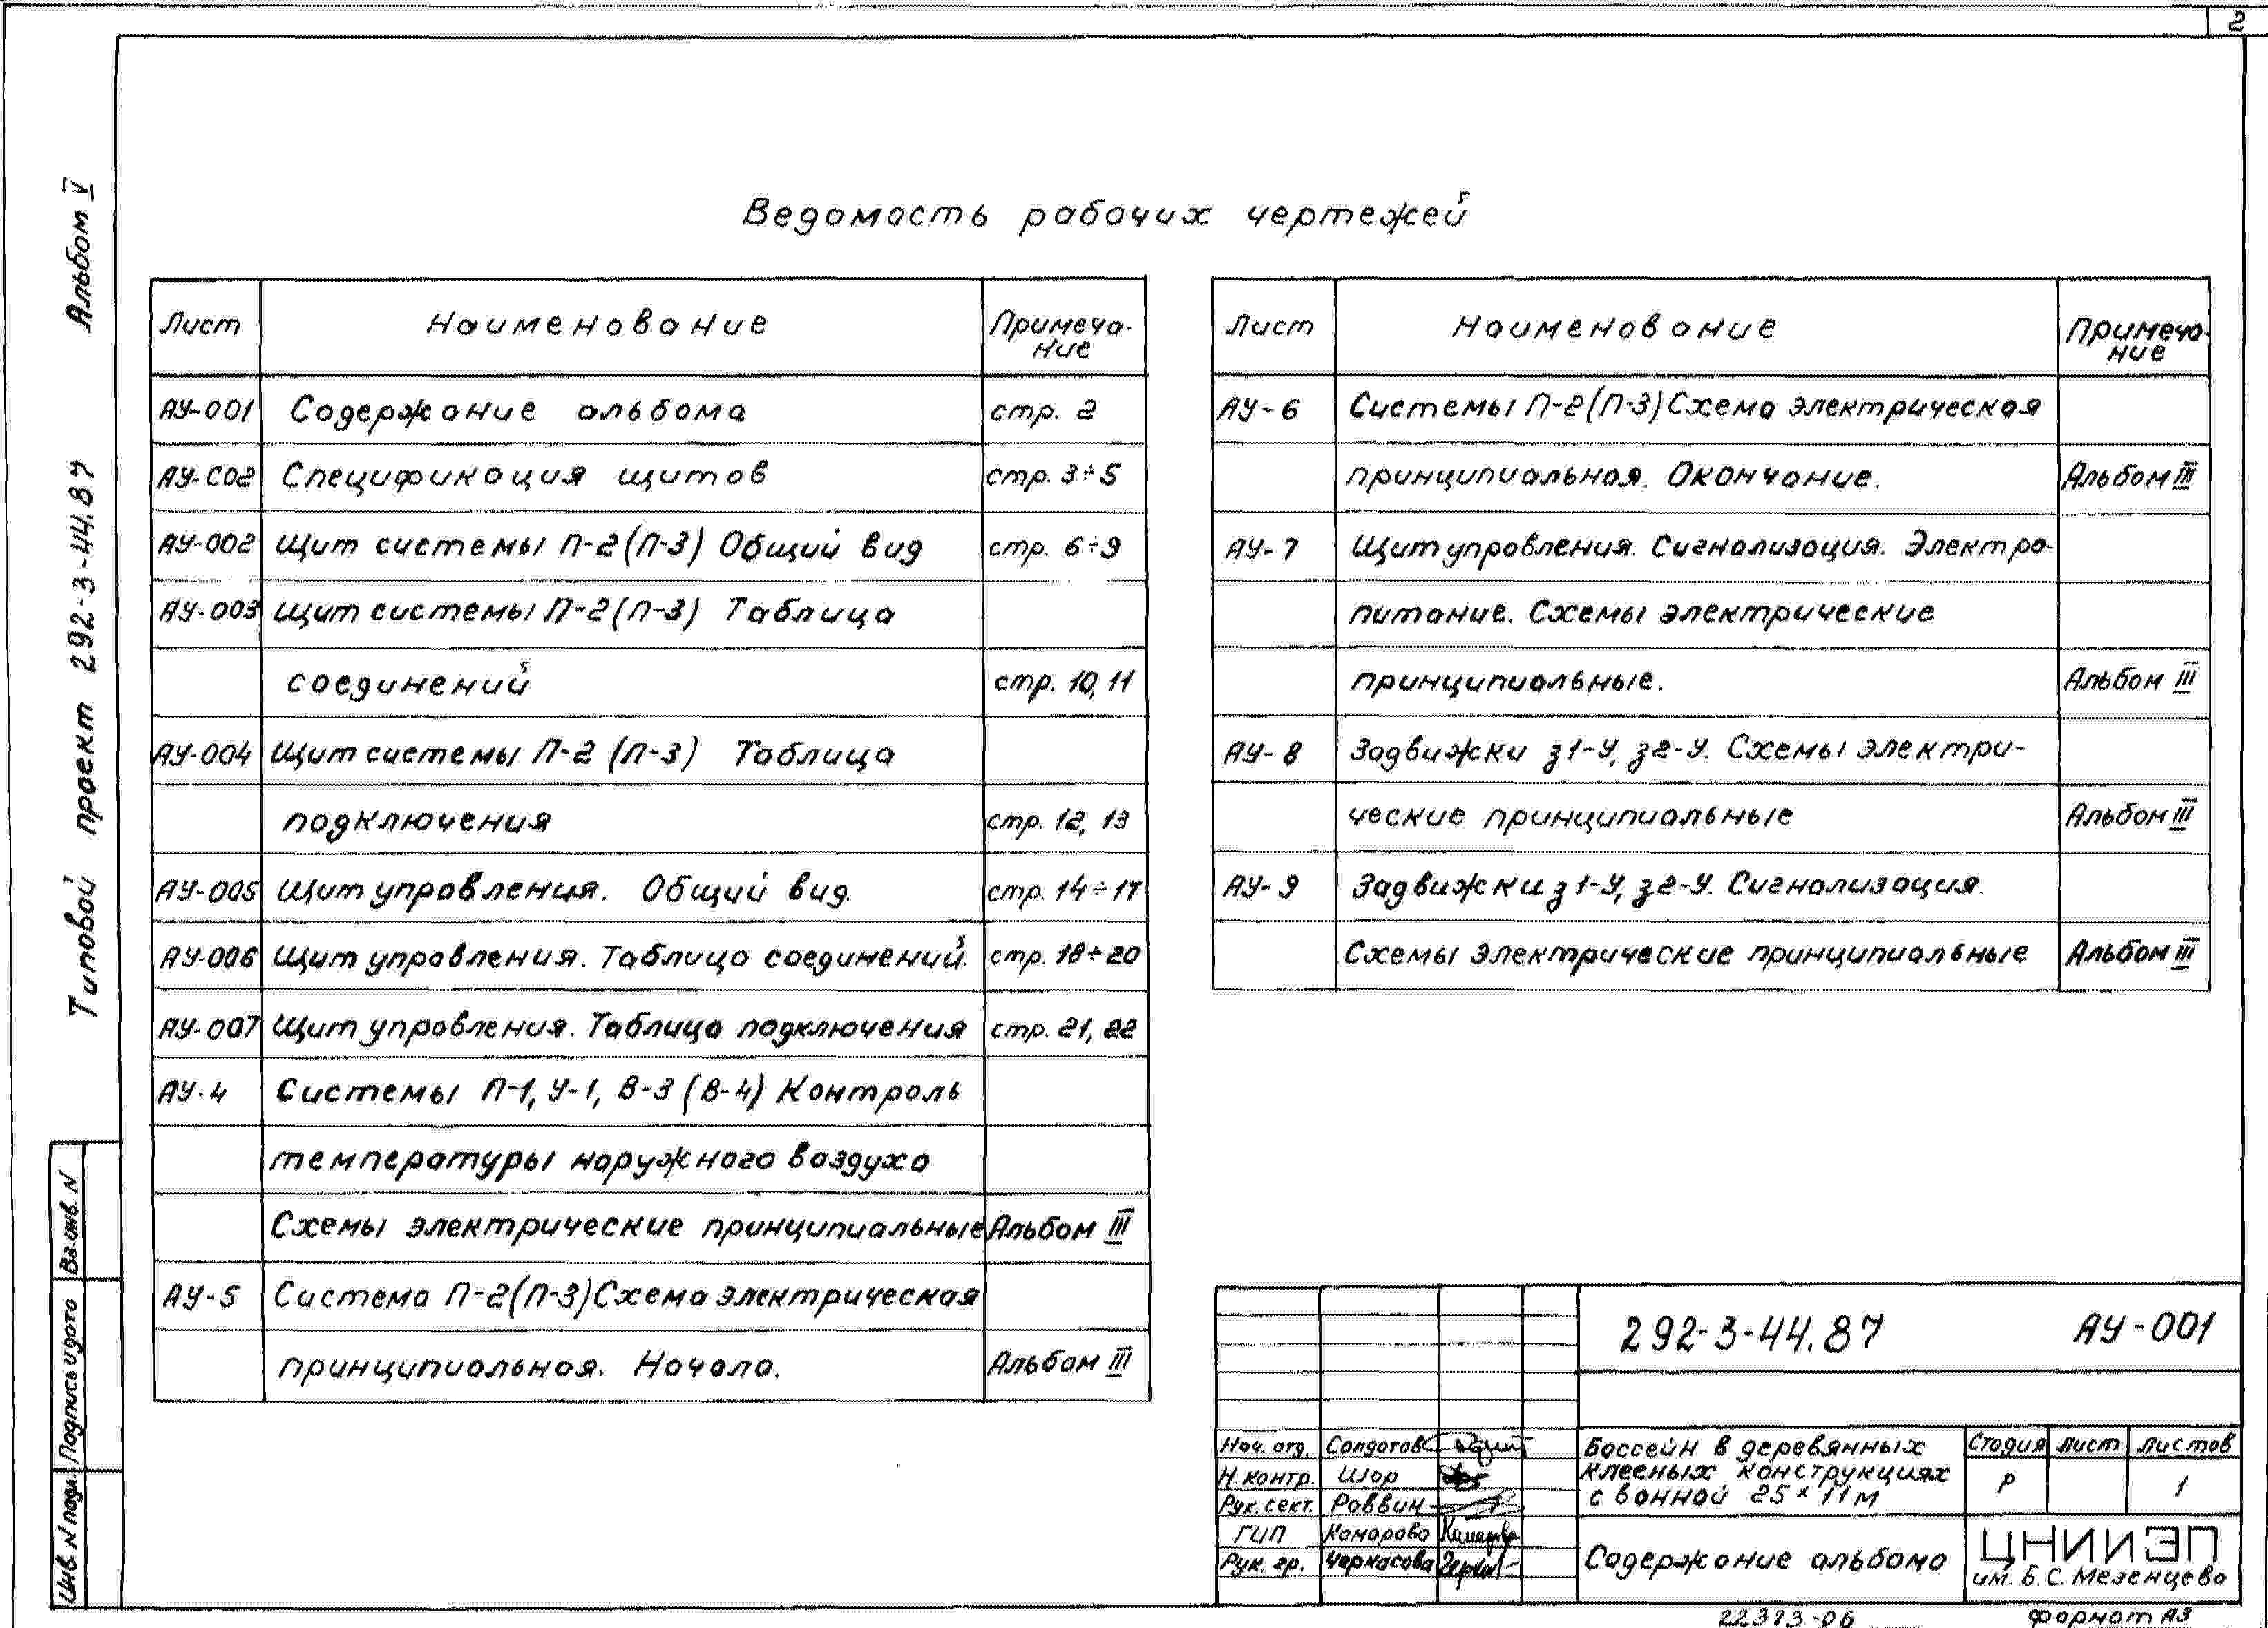 2
Альбом V
Типовой проект 292-3-44.87
Ведомость рабочих чертежей
Лист Наименование Примеча-
ние
АУ-001 Содержание альбома стр. 2
АУ-С02 Спецификация щитов стр. 3÷5
АУ-002 Щит системы П-2(П-3) Общий вид стр. 6÷9
АУ-003 Щит системы П-2(П-3) Таблица
соединений стр. 10, 11
АУ-004 Щит системы П-2 (П-3) Таблица
подключения стр. 12, 13
АУ-005 Щит управления. Общий вид. стр. 14÷17
АУ-006 Щит управления. Таблица соединений. стр. 18÷20
АУ-007 Щит управления. Таблица подключения стр. 21, 22
АУ-4 Системы П-1, У-1, В-3 (В-4) Контроль
температуры наружного воздуха
Схемы электрические принципиальные Альбом III
АУ-5 Система П-2(П-3) Схема электрическая
принципиальная. Начало. Альбом III
Лист Наименование Примеча-
ние
АУ-6 Системы П-2(П-3) Схема электрическая
принципиальная. Окончание. Альбом III
АУ-7 Щит управления. Сигнализация. Электро-
питание. Схемы электрические
принципиальные. Альбом III
АУ-8 Задвижки з1-У, з2-У. Схемы электри-
ческие принципиальные Альбом III
АУ-9 Задвижки з1-У, з2-У. Сигнализация.
Схемы электрические принципиальные Альбом III
Инв. N подл. Подпись и дата Вз. инв. N
292-3-44.87 АУ-001
Нач. отд. Солдатов
Н. контр. Шор
Рук. сект. Раввин
ГИП Комарова
Рук. гр. Черкасова
Бассейн в деревянных
клееных конструкциях
с ванной 25×11м
Стадия Лист Листов
Р 1
Содержание альбома
ЦНИИЭП
им. Б.С. Мезенцева
22373-06 Формат А3